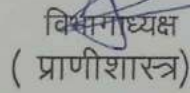 विभागाध्यक्ष
( प्राणीशास्त्र)